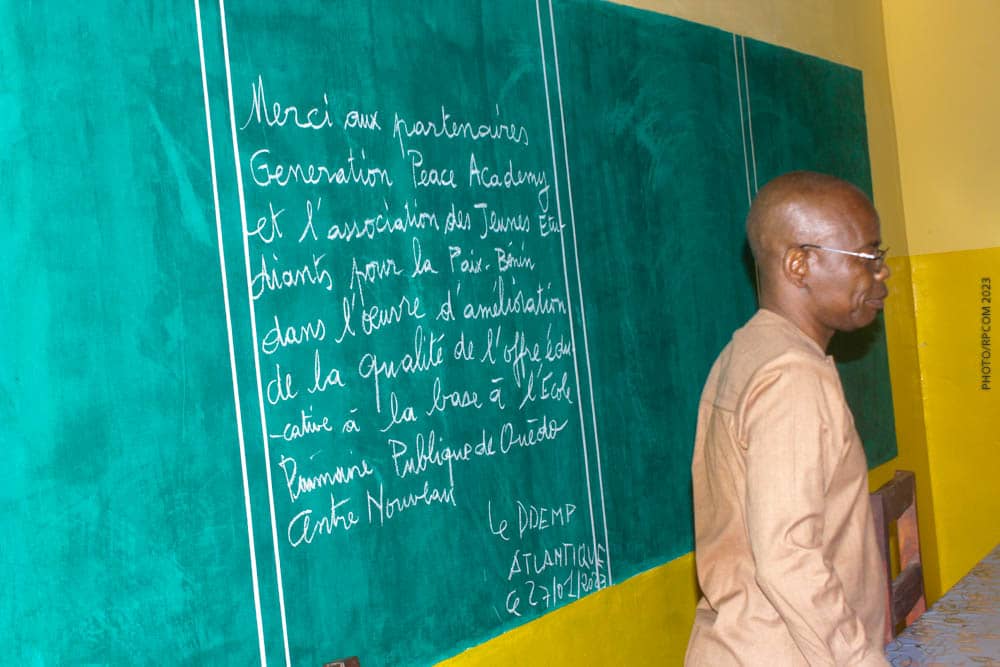 Merci aux partenaires
Generation Peace Academy
et l'association des Jeunes Etu-
diants pour la Paix-Bénin
dans l'oeuvre d'amélioration
de la qualité de l'offre édu
-cative à la base à l'École
Primaire Publique de Ouèdo
Centre Nouveau
Le DDEMP
ATLANTIQUE
Le 27/01/2023
PHOTO/RPCOM 2023